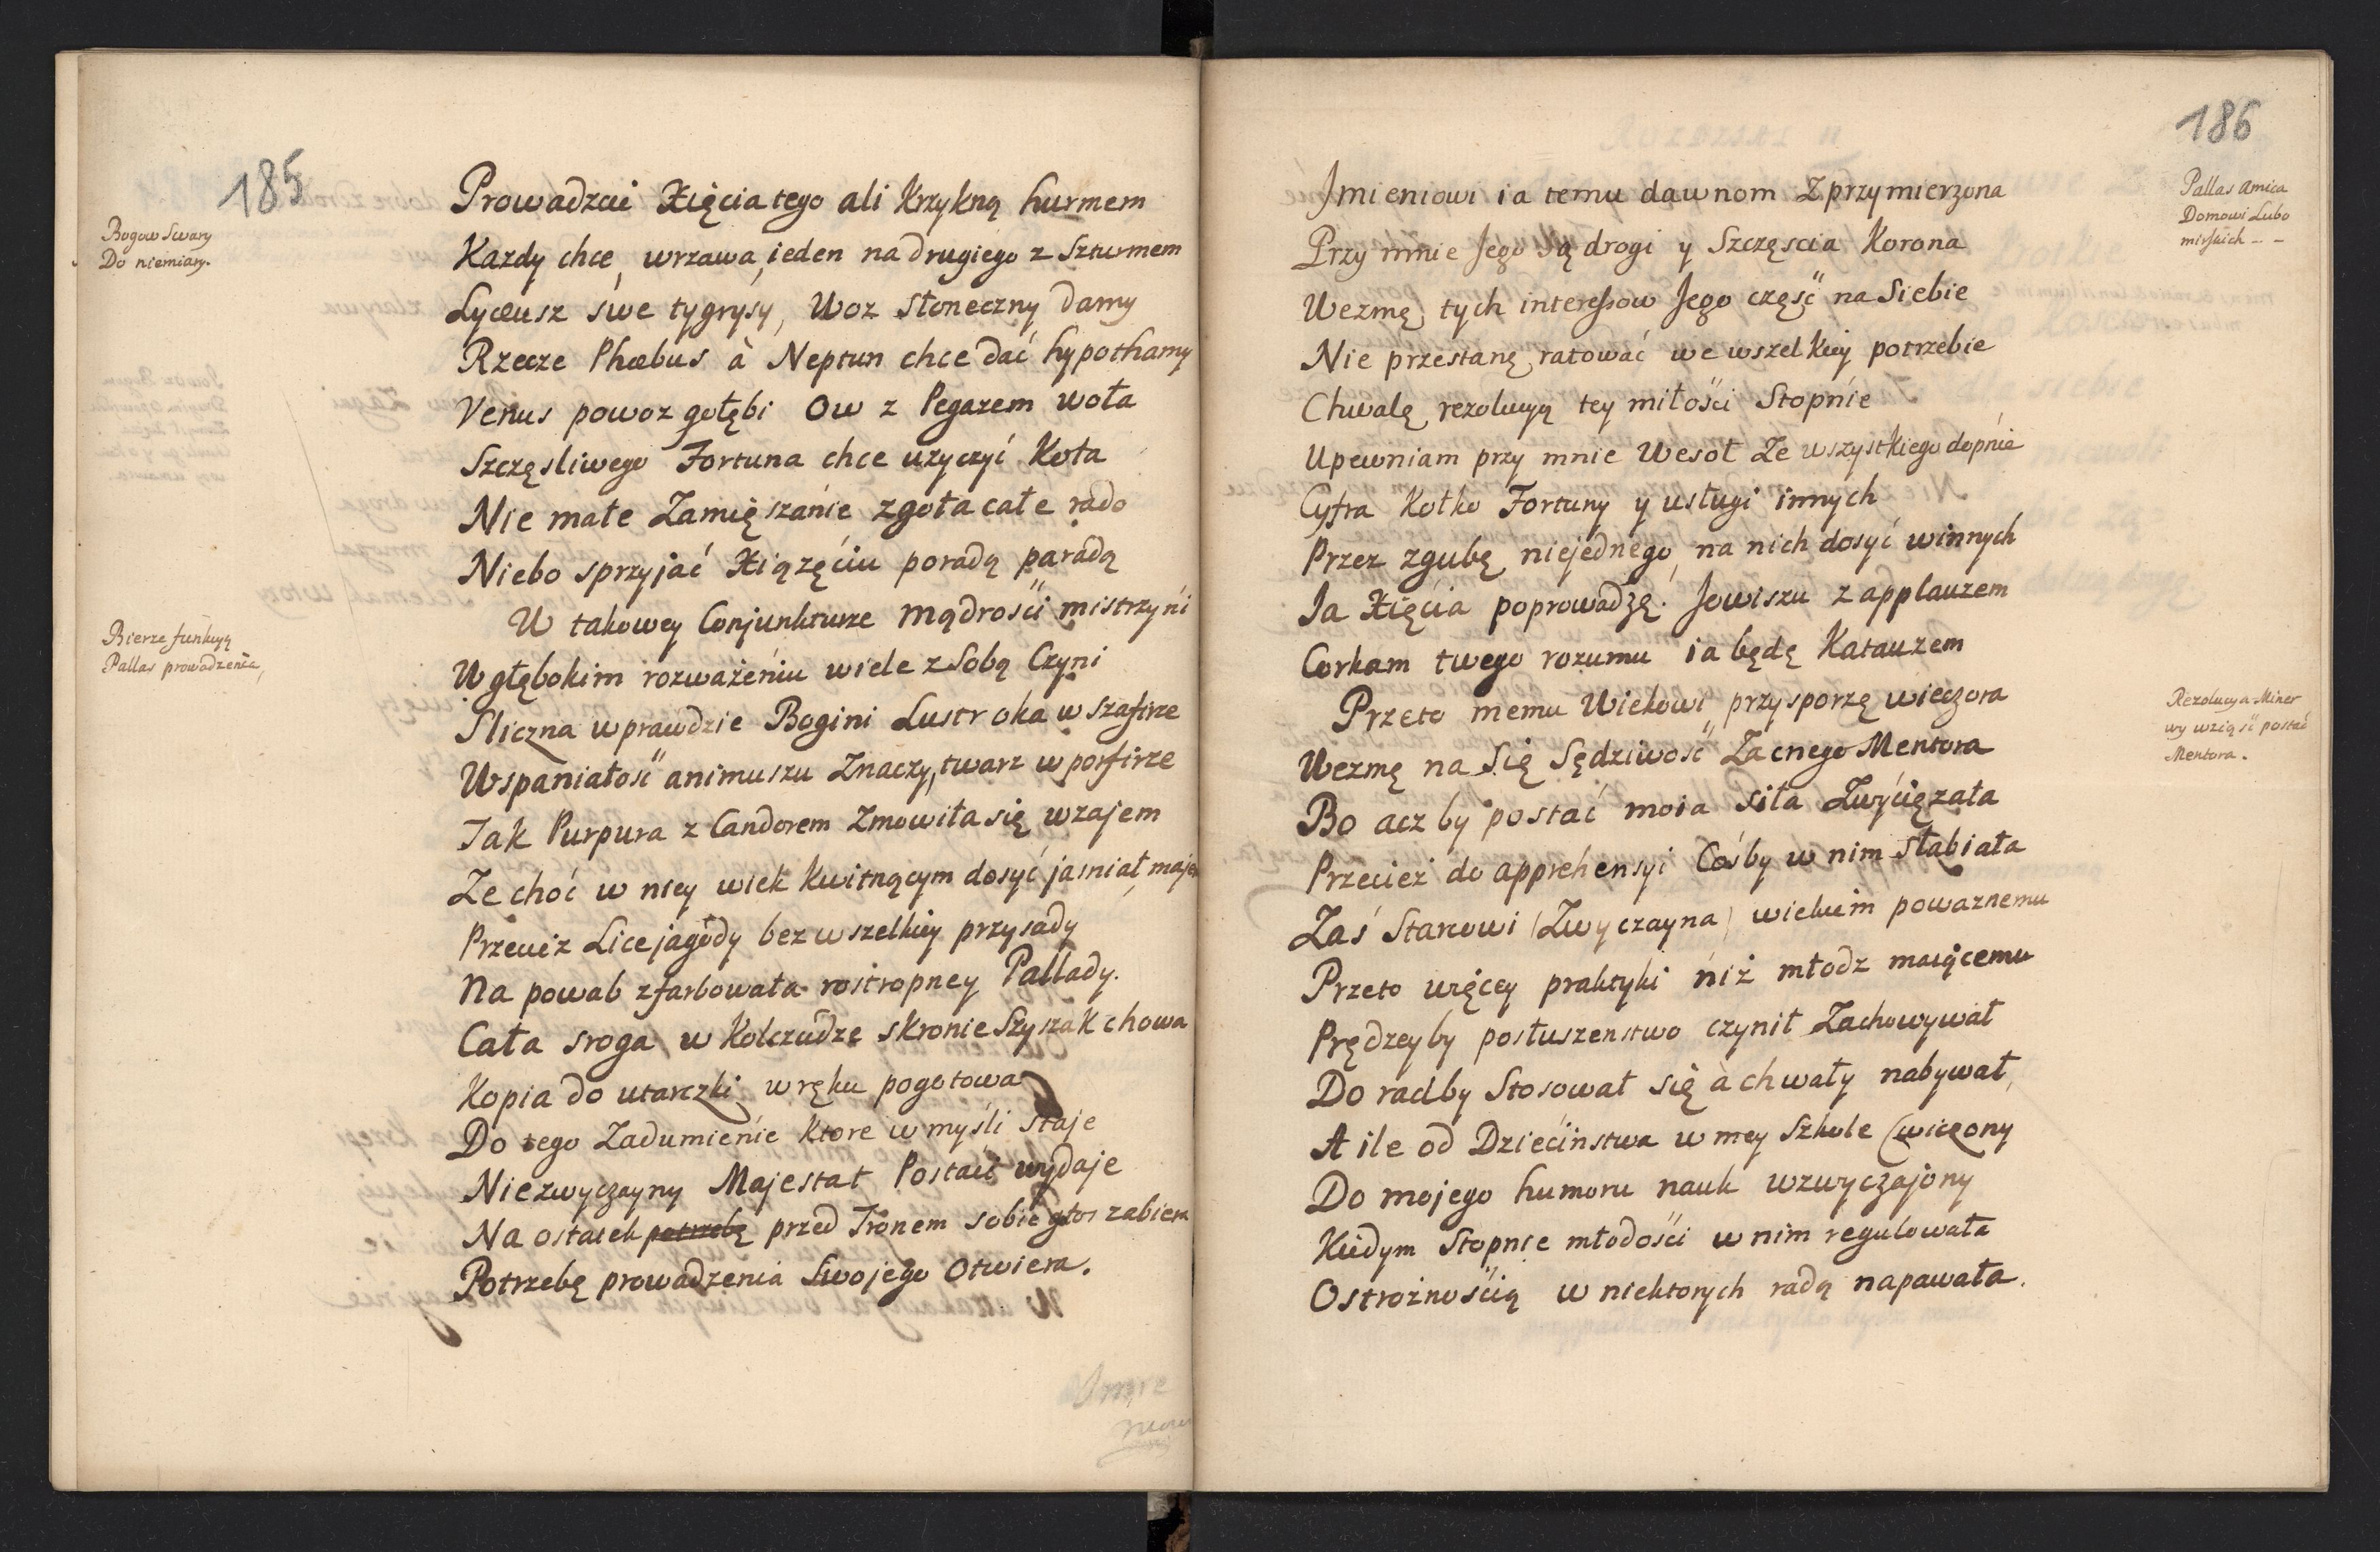 185
Bogow Swary
Do niemiary.
Prowadzcie Xięcia tego ali Krzykną hurmem
Kazdy chce, wrzawa, ieden na drugiego z Szturmem
Lyæusz swe tygrysy, Woz Słoneczny damy
Rzecze Phœbus à Neptun chce dać hypothamy
Venus powoz gołębi Ow z Pegazem woła
Szczęsliwego Fortuna chce uzyczyć Koła
Nie małe Zamięszánie zgoła całe rado
Niebo sprzyjać Xiązęćiu poradą paradą
W takowey Conjunkturze mądrośći mistrzyńi
W głębokim rozważeńiu wiele z Sobą Czyni
Sliczna wprawdzie Bogini Lustr oka w szafirze
Wspaniałość animuszu Znaczy, twarz w porfirze
Jak Purpura z Candorem Zmowiła się wzajem
Ze choć w niey wiek Kwitnącym dosyć jasniał, majem
Przeciez Lice jagody bez wszelkiey przysady
Na powab zfarbowała rostropney Pallady.
Cała sroga w Kolczudze skronie Szyszak chowa
Kopia do utarczki w ręku pogotowa
Do tego Zadumienie Ktore w myśli staje
Niezwyczayny Majestat Postaci wydaje
Na ostatek potrzebę przed Tronem sobie głos zabiera
Potrzebę prowadzenia Swojego Otwiera.
Bierze funkcyą
Pallas prowadzenia,
186
Pallas Amica
Domowi Lubo
mirskich - -
Jmieniowi ia temu dawnom Zprzymierzona
Przy mnie Jego są drogi y Szczęscia Korona
Wezmę tych interessow Jego część na Siebie
Nie przestanę ratować we wszelkiey potrzebie
Chwalę rezolucyą tey miłości Stopnie
Upewniam przy mnie Wesoł Ze wszystkiego dopnie
Cyfra Kołko Fortuny y usługi innych
Przez zgubę niejednego, na nich dosyć winnych
Ia Xięcia poprowadzę. Jowiszu z applauzem
Corkam twego rozumu ia będę Katauzem
Przeto memu Wiekowi przysporzę wieczora
Wezmę na Się Sędziwość Zacnego Mentora
Bo acz by postać moia siła Zwyćięzała
Przecież do apprehensyi Cośby w nim słabiała
Zaś Starcowi (Zwyczayna) wiekiem powaznemu
Przeto więcey praktyki niż młodz maiącemu
Prędzeyby posłuszenstwo czynił Zachowywał
Do radby Stosował się à chwały nabywał,
A ile od Dziećinstwa w mey Szkole Cwiczony
Do mojego humoru nauk wzwyczajony
Kiedym Stopnie młodości w nim regulowała
Ostrożnośćią w niektorych radą napawała.
Rezolucya Miner
wy wziąść postać
Mentora.